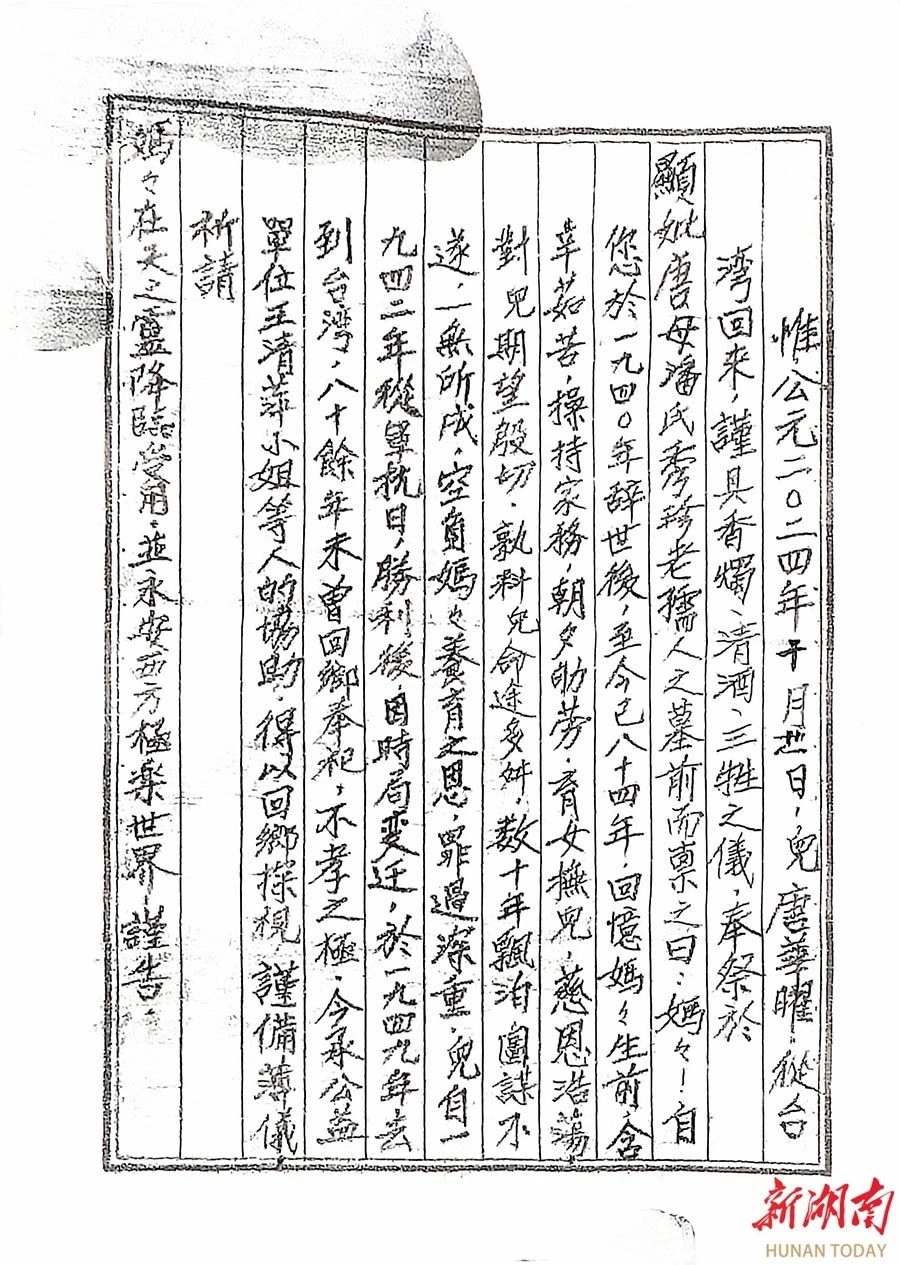 惟公元二〇二四年十月廿日，兒唐華曜，從台
湾回來，謹具香燭、清酒、三牲之儀，奉祭於
顯妣唐母潘氏秀珍老孺人之墓前而稟之曰：媽々！自
您於一九四〇年辞世後，至今已八十四年，回憶媽々生前，含
莘茹苦，操持家務，朝夕劬劳，育女撫兒，慈恩浩蕩
對兒期望殷切，孰料兒命途多舛，数十年飄泊，圖謀不
遂，一無所成，空負媽々養育之恩，罪過深重，兒自一
九四二年從軍抗日，勝利後，因時局变迁，於一九四九年去
到台湾，八十餘年未曾回鄉奉祀，不孝之極，今承公益
單位王清萍小姐等人的協助，得以回鄉探視，謹備薄儀，
祈請
媽々在天之靈降臨受用，並永安西方極楽世界，謹告。
新湖南
HUNAN TODAY